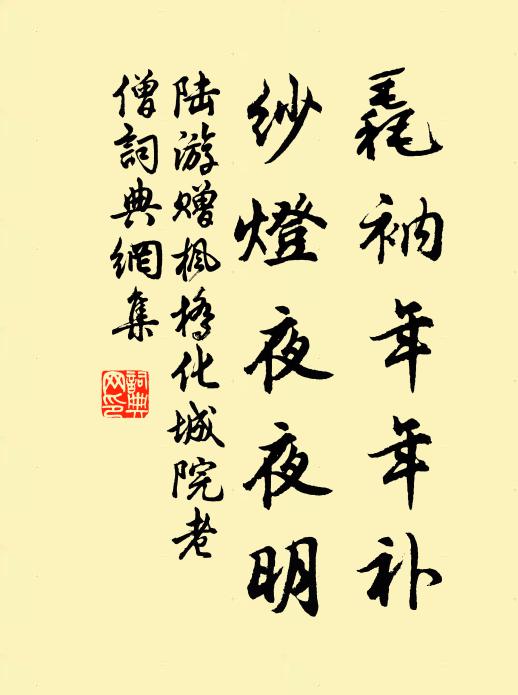 毳衲年年补
纱燈夜夜明
陆游赠枫橋化城院老
僧詞典網集
詞典网印